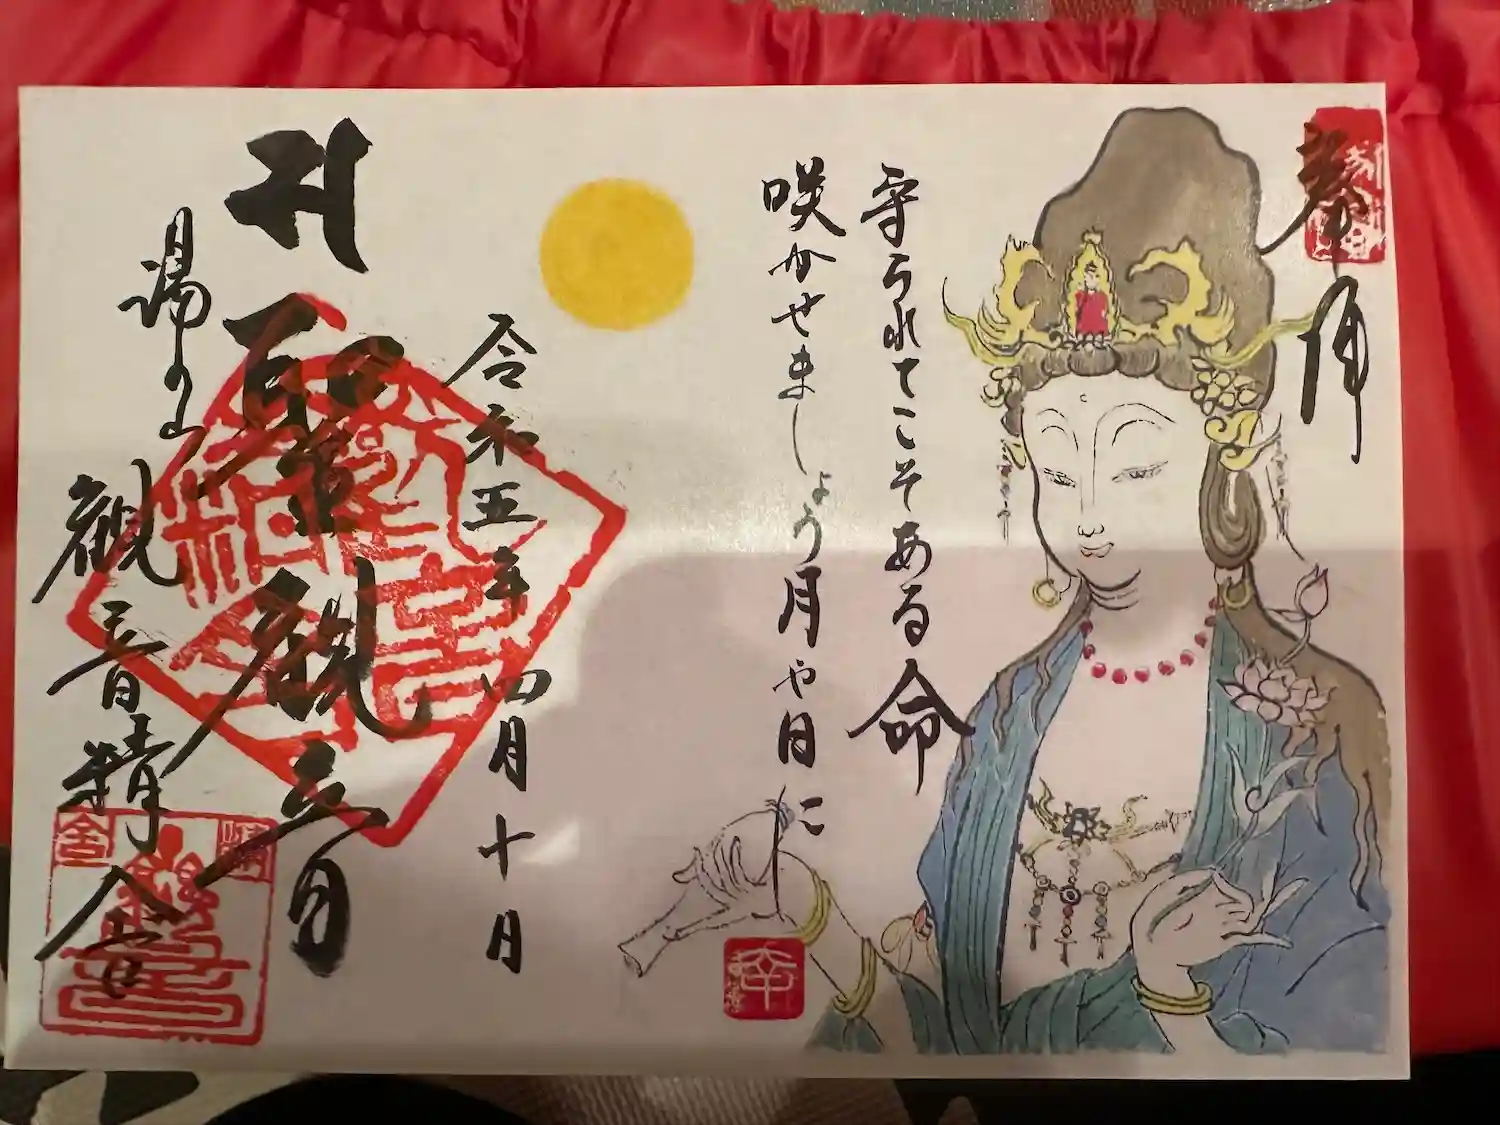 奉拝
守られてこそある命
咲かせましょう月や日に
令和五年四月十日
聖観音
湯の山
観音精舎
幸
精
舎